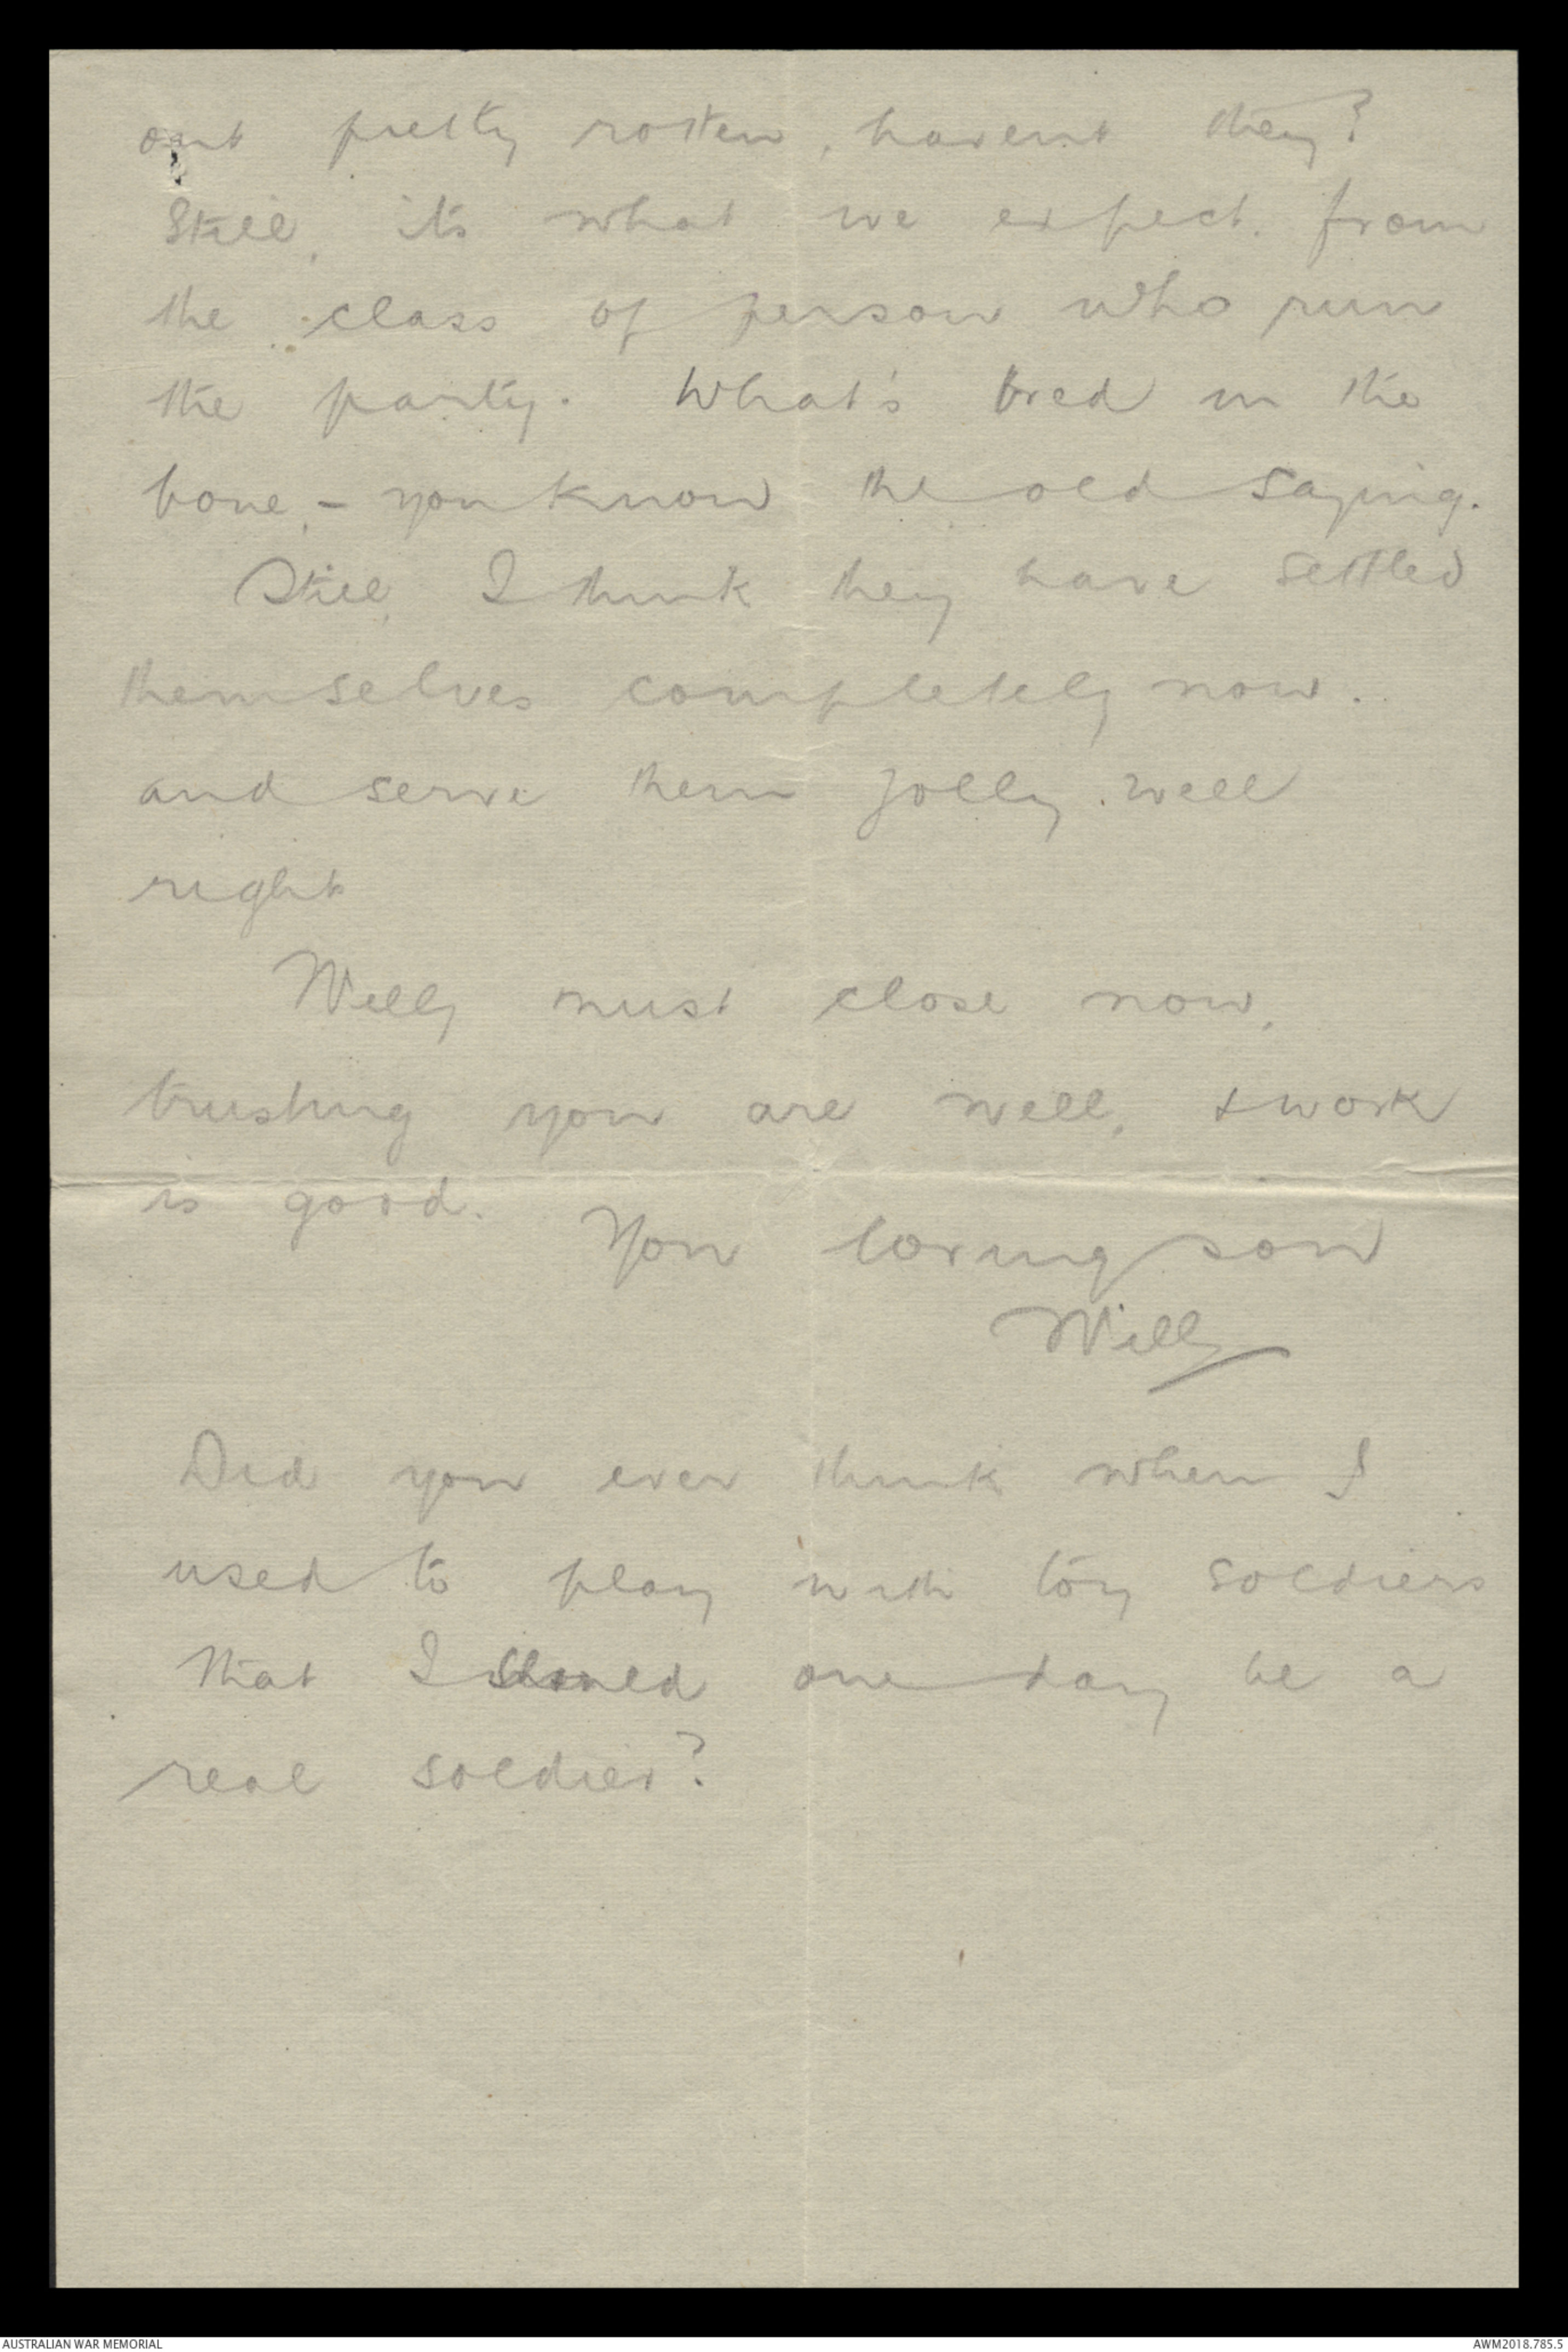 out pretty rotten, haven't they?
Still, its what we expect from
the class of person who run
the party. What's bred in the
bone, - you know the old saying.
Still, I think they have settled
themselves completely now.
and serve them jolly well
right
Well, must close now,
trusting you are well, & work
is good.
Your loving son
Will
Did you ever think when I
used to play with toy soldiers
that I should one day be a
real soldier?
AUSTRALIAN WAR MEMORIAL
AWM2018.785.5